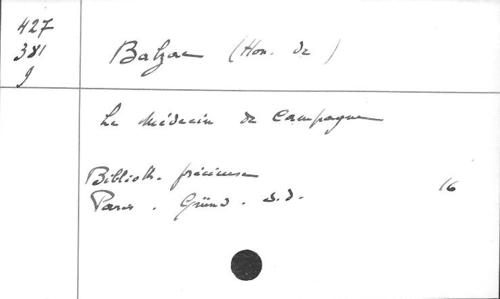 427
381
Balzac (Hon. de)
Le Médecin de Campagne
Biblioth. précieuse
Paris. Gründ. s.d.
16